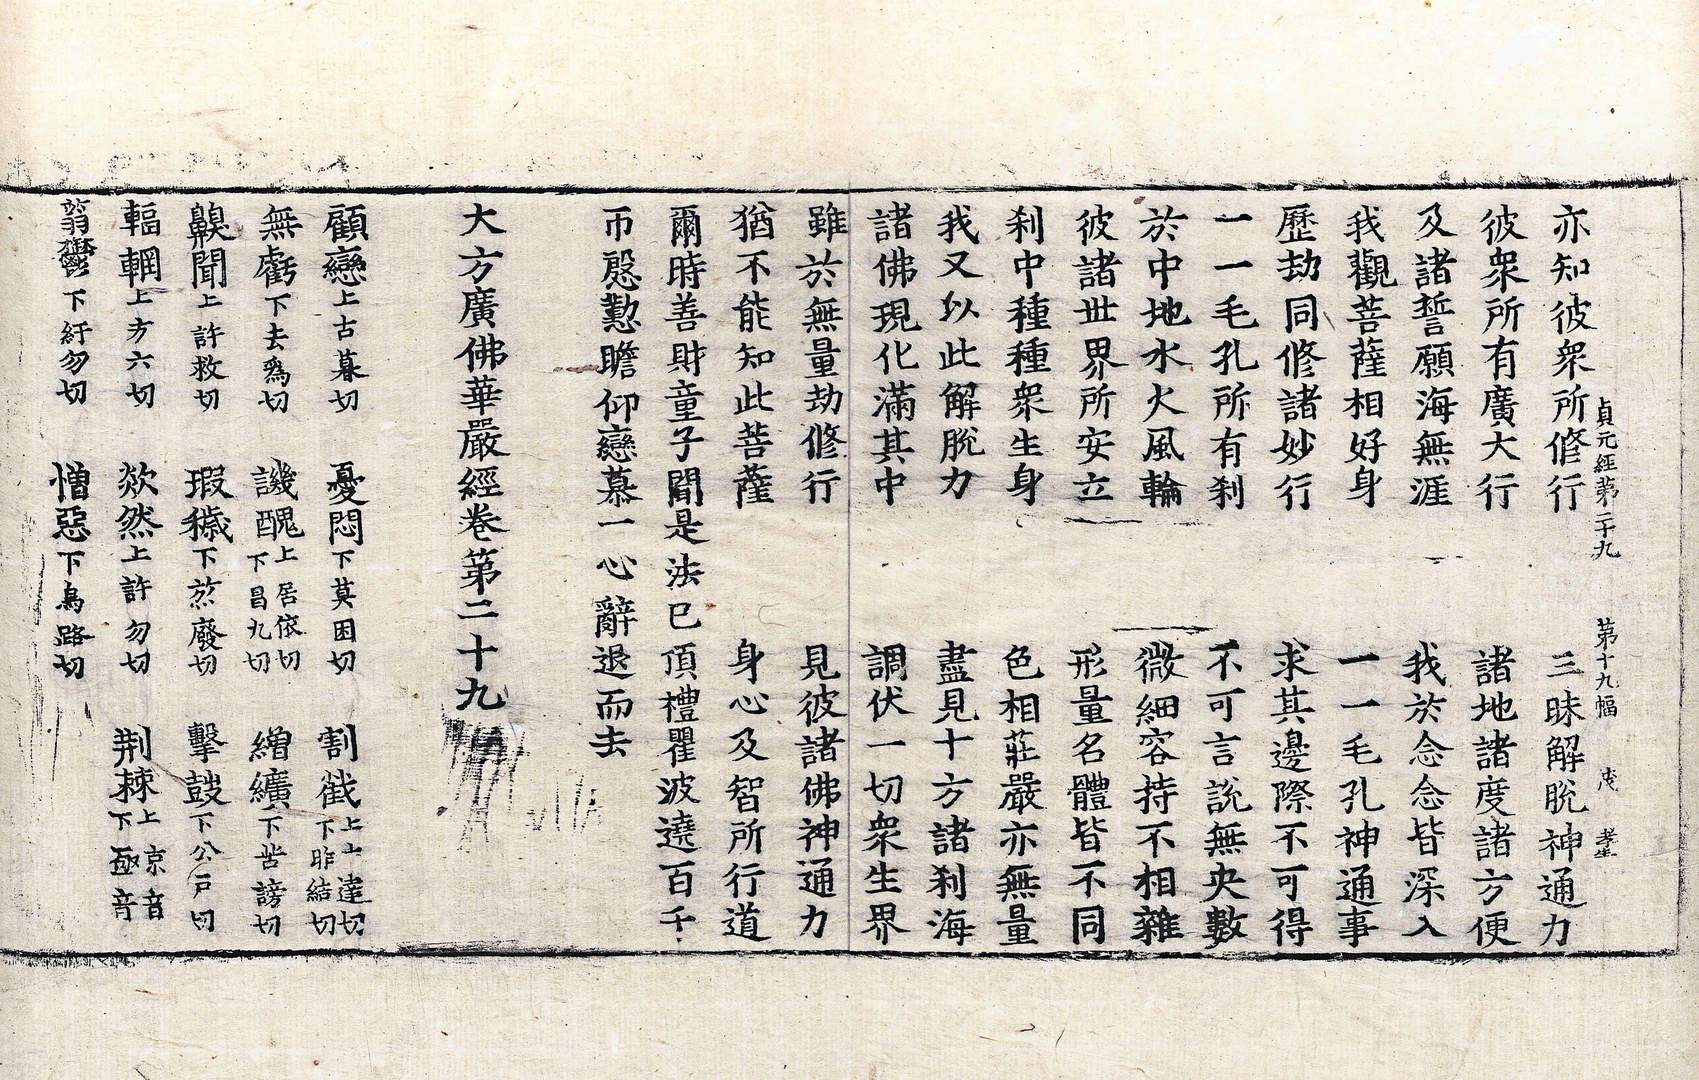 貞元經第二十九 第十九幅 戊
亦知彼衆所修行 三昧解脫神通力
彼衆所有廣大行 諸地諸度諸方便
及諸誓願海無涯 我於念念皆深入
我觀菩薩相好身 一一毛孔神通事
歷劫同修諸妙行 求其邊際不可得
一一毛孔所有刹 不可言說無央數
於中地水火風輪 微細容持不相雜
彼諸世界所安立 形量名體皆不同
刹中種種衆生身 色相莊嚴亦無量
我又以此解脫力 盡見十方諸刹海
諸佛現化滿其中 調伏一切衆生界
雖於無量劫修行 見彼諸佛神通力
猶不能知此菩薩 身心及智所行道
爾時善財童子聞是法已頂禮瞿波遶百千
帀慇懃瞻仰戀慕一心辭退而去
大方廣佛華嚴經卷第二十九
顧戀上古暮切 憂悶下莫困切 割截上 達切下昨結切
無虧下去爲切 譏醜上居依切下昌九切 繒纊下苦謗切
齅聞上許救切 瑕穢下於廢切 擊鼓下公戸切
輻輞上方六切 欻然上許勿切 荆棘上京音下亟音
翁鬱下紆勿切 憎惡下烏路切